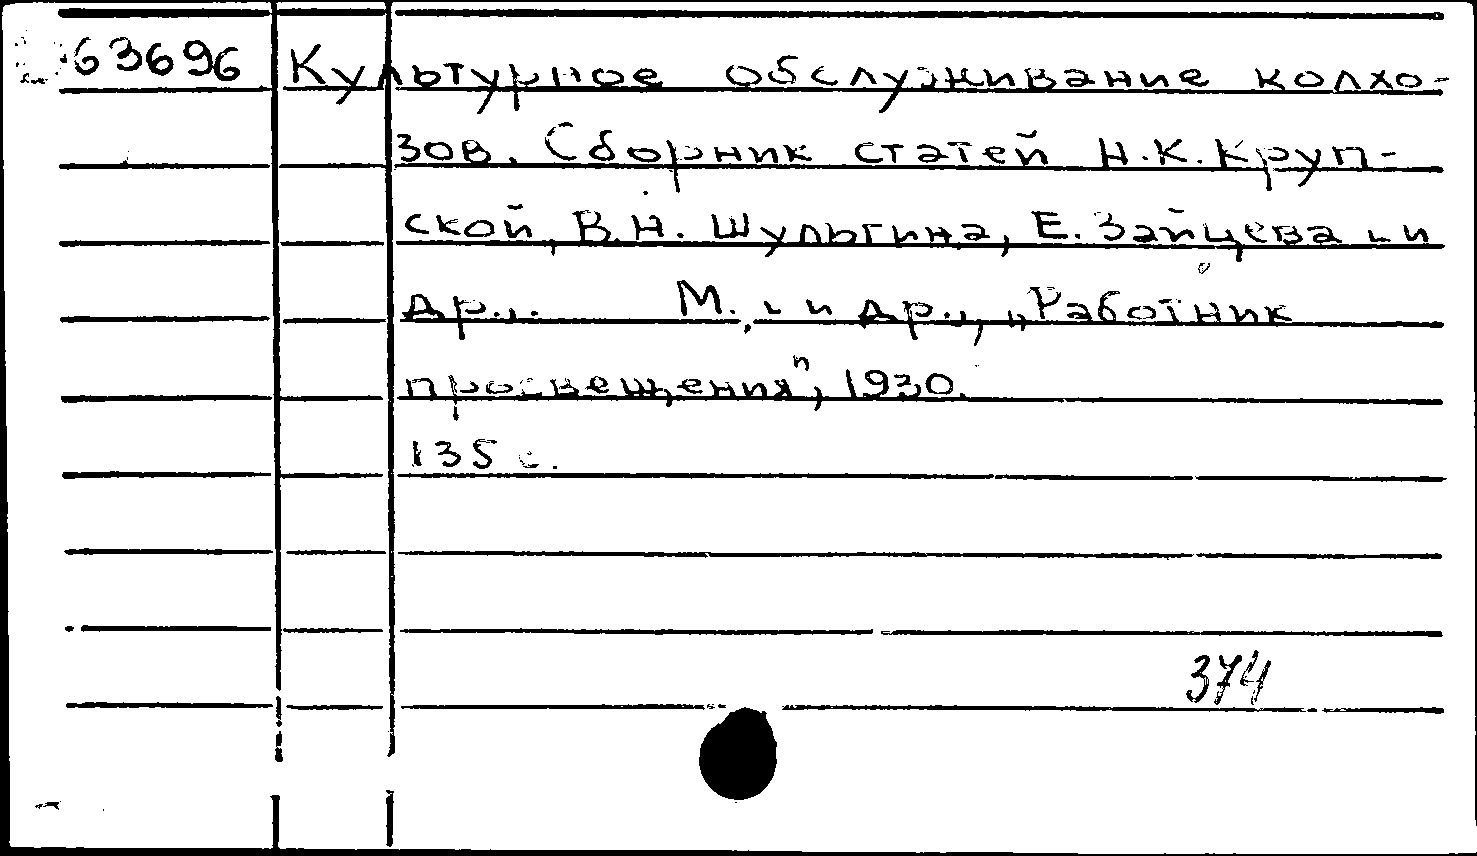 63696 Культурное обслуживание колхо-
зов. Сборник статей Н.К.Круп-
ской, В.Н. Шульгина, Е. Зайцева [и
др.]. М., [и др.], „Работник
просвещения", 1930.
135 с.
374